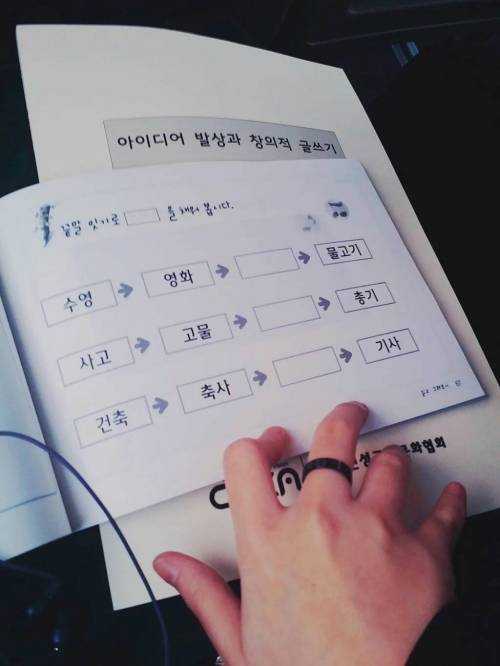 아이디어 발상과 창의적 글쓰기
끝말 잇기로 을 채워 봅시다.
수영 영화 물고기
사고 고물 총기
건축 축사 기사
화협회